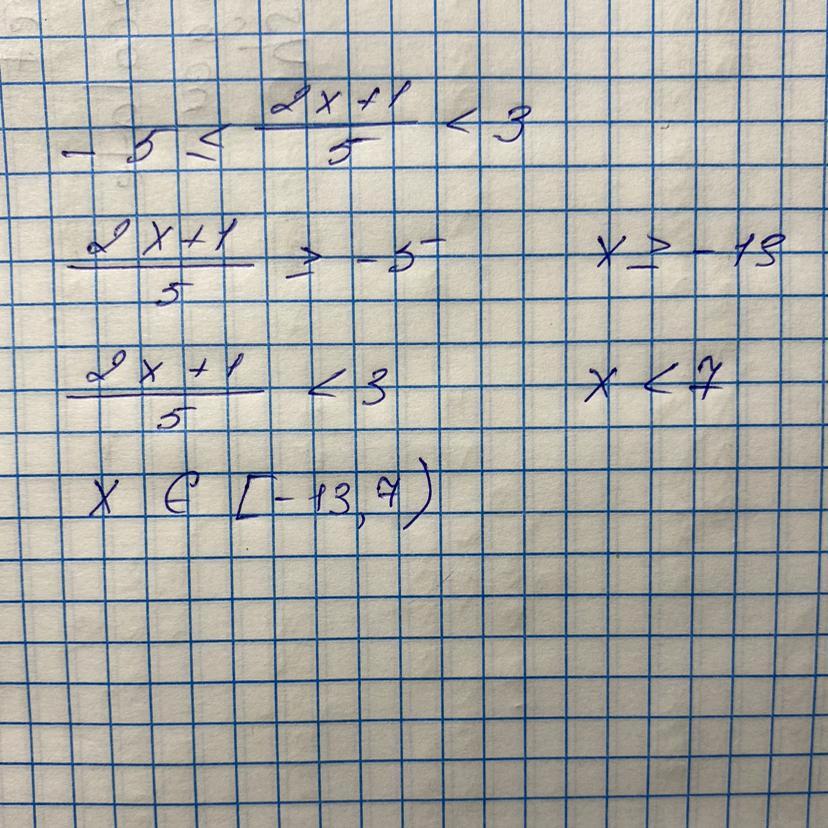 -5 ≤ (2x+1)/5 < 3
(2x+1)/5 ≥ -5 x ≥ -13
(2x+1)/5 < 3 x < 7
x ∈ [-13,7)